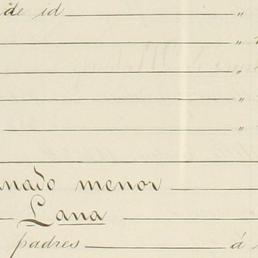 de id "
"
"
"
"
anado menor
Lana
padres á